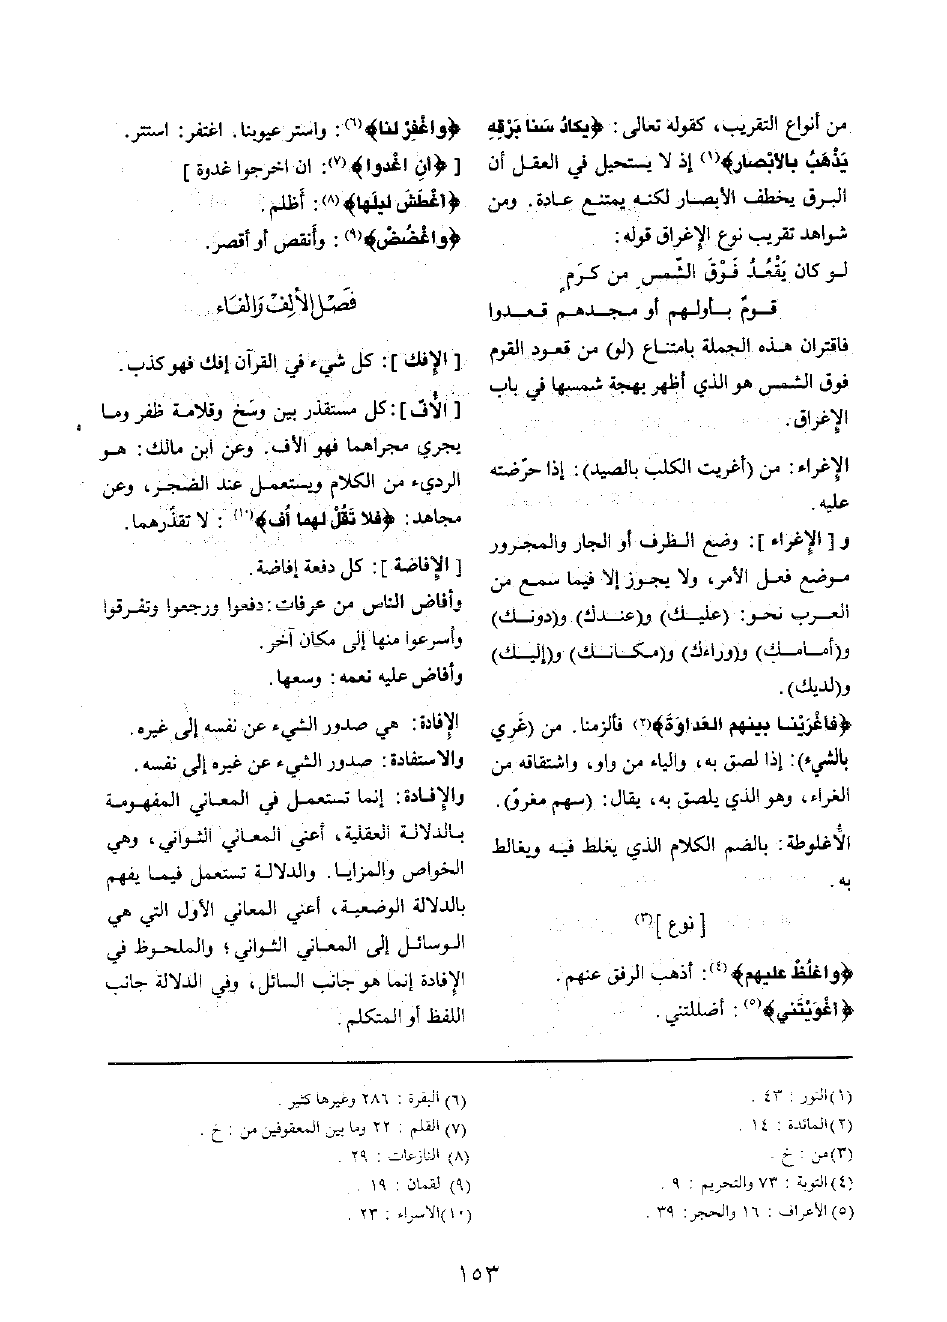 من أنواع التقريب، كقوله تعالى : ﴿يكادُ سَنا بَرْقِهِ
يَذْهَبُ بالأبْصار﴾(١) إذ لا يستحيل في العقل أن
البرق يخطف الأبصار لكنه يمتنع عادة. ومن
شواهد تقريب نوع الإغراق قوله:
لو كان يَقْعُدُ فَوْقَ الشّمسِ من كَرَمٍ
قومٌ بأولهم أو مجدهم قعدوا
فاقتران هذه الجملة بامتناع (لو) من قعود القوم
فوق الشمس هو الذي أظهر بهجة شمسها في باب
الإغراق.
الإغراء: من (أغريت الكلب بالصيد): إذا حرّضته
عليه.
و [ الإغراء ]: وضع الظرف أو الجار والمجرور
موضع فعل الأمر، ولا يجوز إلا فيما سمع من
العرب نحو: (عليك) و(عندك) و(دونك)
و(أمامك) و(وراءك) و(مكانك) و(إليك)
و(لديك).
﴿فأغْرَيْنا بينهم العَداوَةَ﴾(٢) فألزمنا. من (غَري
بالشيء): إذا لصق به، والياء من واو، واشتقاقه من
الغراء، وهو الذي يلصق به، يقال: (سهم مغرق).
الأُغلوطة: بالضم الكلام الذي يغلط فيه ويغالط
به.
[ نوع ](٣)
﴿واغلُظْ عليهم﴾(٤): أذهب الرفق عنهم.
﴿أغْوَيْتَني﴾(٥): أضللتني.
﴿واغْفِرْ لنا﴾(٦): واستر عيوبنا. اغتفر: استتر.
[ ﴿أنِ اغْدوا﴾(٧): ان اخرجوا غدوة ]
﴿اغْطَشَ ليلَها﴾(٨): أظلم.
﴿واغْضُضْ﴾(٩): وأنقص أو أقصر.
فَصْل الألِف وَالفَاء
[ الإفك ]: كل شيء في القرآن إفك فهو كذب.
[ الأُفّ ]: كل مستقذر بين وسَخ وقلامة ظفر وما
يجري مجراهما فهو الأف. وعن ابن مالك: هو
الرديء من الكلام ويستعمل عند الضجر، وعن
مجاهد: ﴿فلا تَقُلْ لهما أف﴾(١٠): لا تقذّرهما.
[ الإفاضة ]: كل دفعة إفاضة.
وأفاض الناس من عرفات: دفعوا ورجعوا وتفرقوا
وأسرعوا منها إلى مكان آخر.
وأفاض عليه نعمه: وسعها.
الإفادة: هي صدور الشيء عن نفسه إلى غيره.
والاستفادة: صدور الشيء عن غيره إلى نفسه.
والإفادة: إنما تستعمل في المعاني المفهومة
بالدلالة العقلية، أعني المعاني الثواني، وهي
الخواص والمزايا. والدلالة تستعمل فيما يفهم
بالدلالة الوضعية، أعني المعاني الأول التي هي
الوسائل إلى المعاني الثواني؛ والملحوظ في
الإفادة إنما هو جانب السائل، وفي الدلالة جانب
اللفظ أو المتكلم.
(١) النور : ٤٣ .
(٢) المائدة : ١٤ .
(٣) من : خ .
(٤) التوبة : ٧٣ والتحريم : ٩ .
(٥) الأعراف : ١٦ والحجر: ٣٩ .
(٦) البقرة : ٢٨٦ وغيرها كثير .
(٧) القلم : ٢٢ وما بين المعقوفين من : خ .
(٨) النازعات : ٢٩ .
(٩) لقمان : ١٩ .
(١٠) الاسراء : ٢٣ .
١٥٣